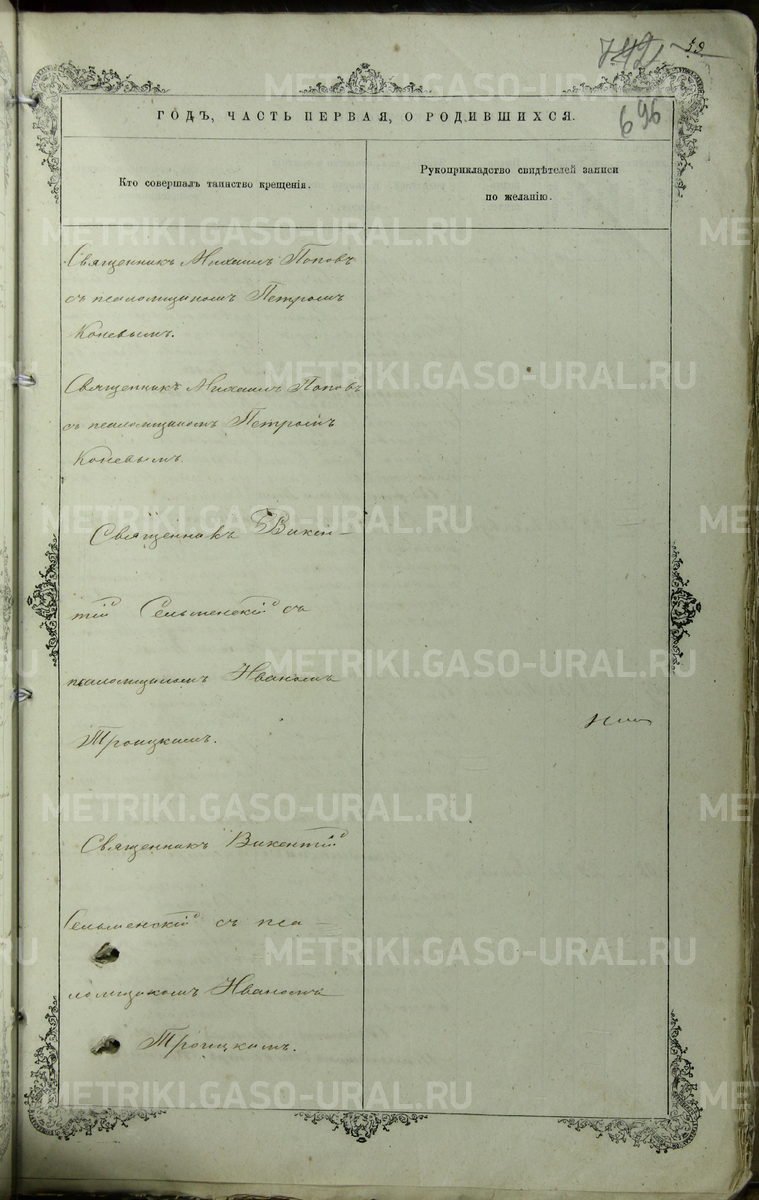 59.
742
696
ГОДЪ, ЧАСТЬ ПЕРВАЯ, О РОДИВШИХСЯ.
Кто совершалъ таинство крещенія.
Рукоприкладство свидѣтелей записи
по желанію.
Священникъ Михаилъ Поповъ
съ псаломщикомъ Петромъ
Коневымъ.
Священникъ Михаилъ Поповъ
съ псаломщикомъ Петромъ
Коневымъ
Священникъ Викен-
тій Сельменскій съ
псаломщикомъ Иваномъ
Троицкимъ.
Священникъ Викентій
Сельменскій съ пса-
ломщикомъ Иваномъ
Троицкимъ.
METRIKI.GASO-URAL.RU